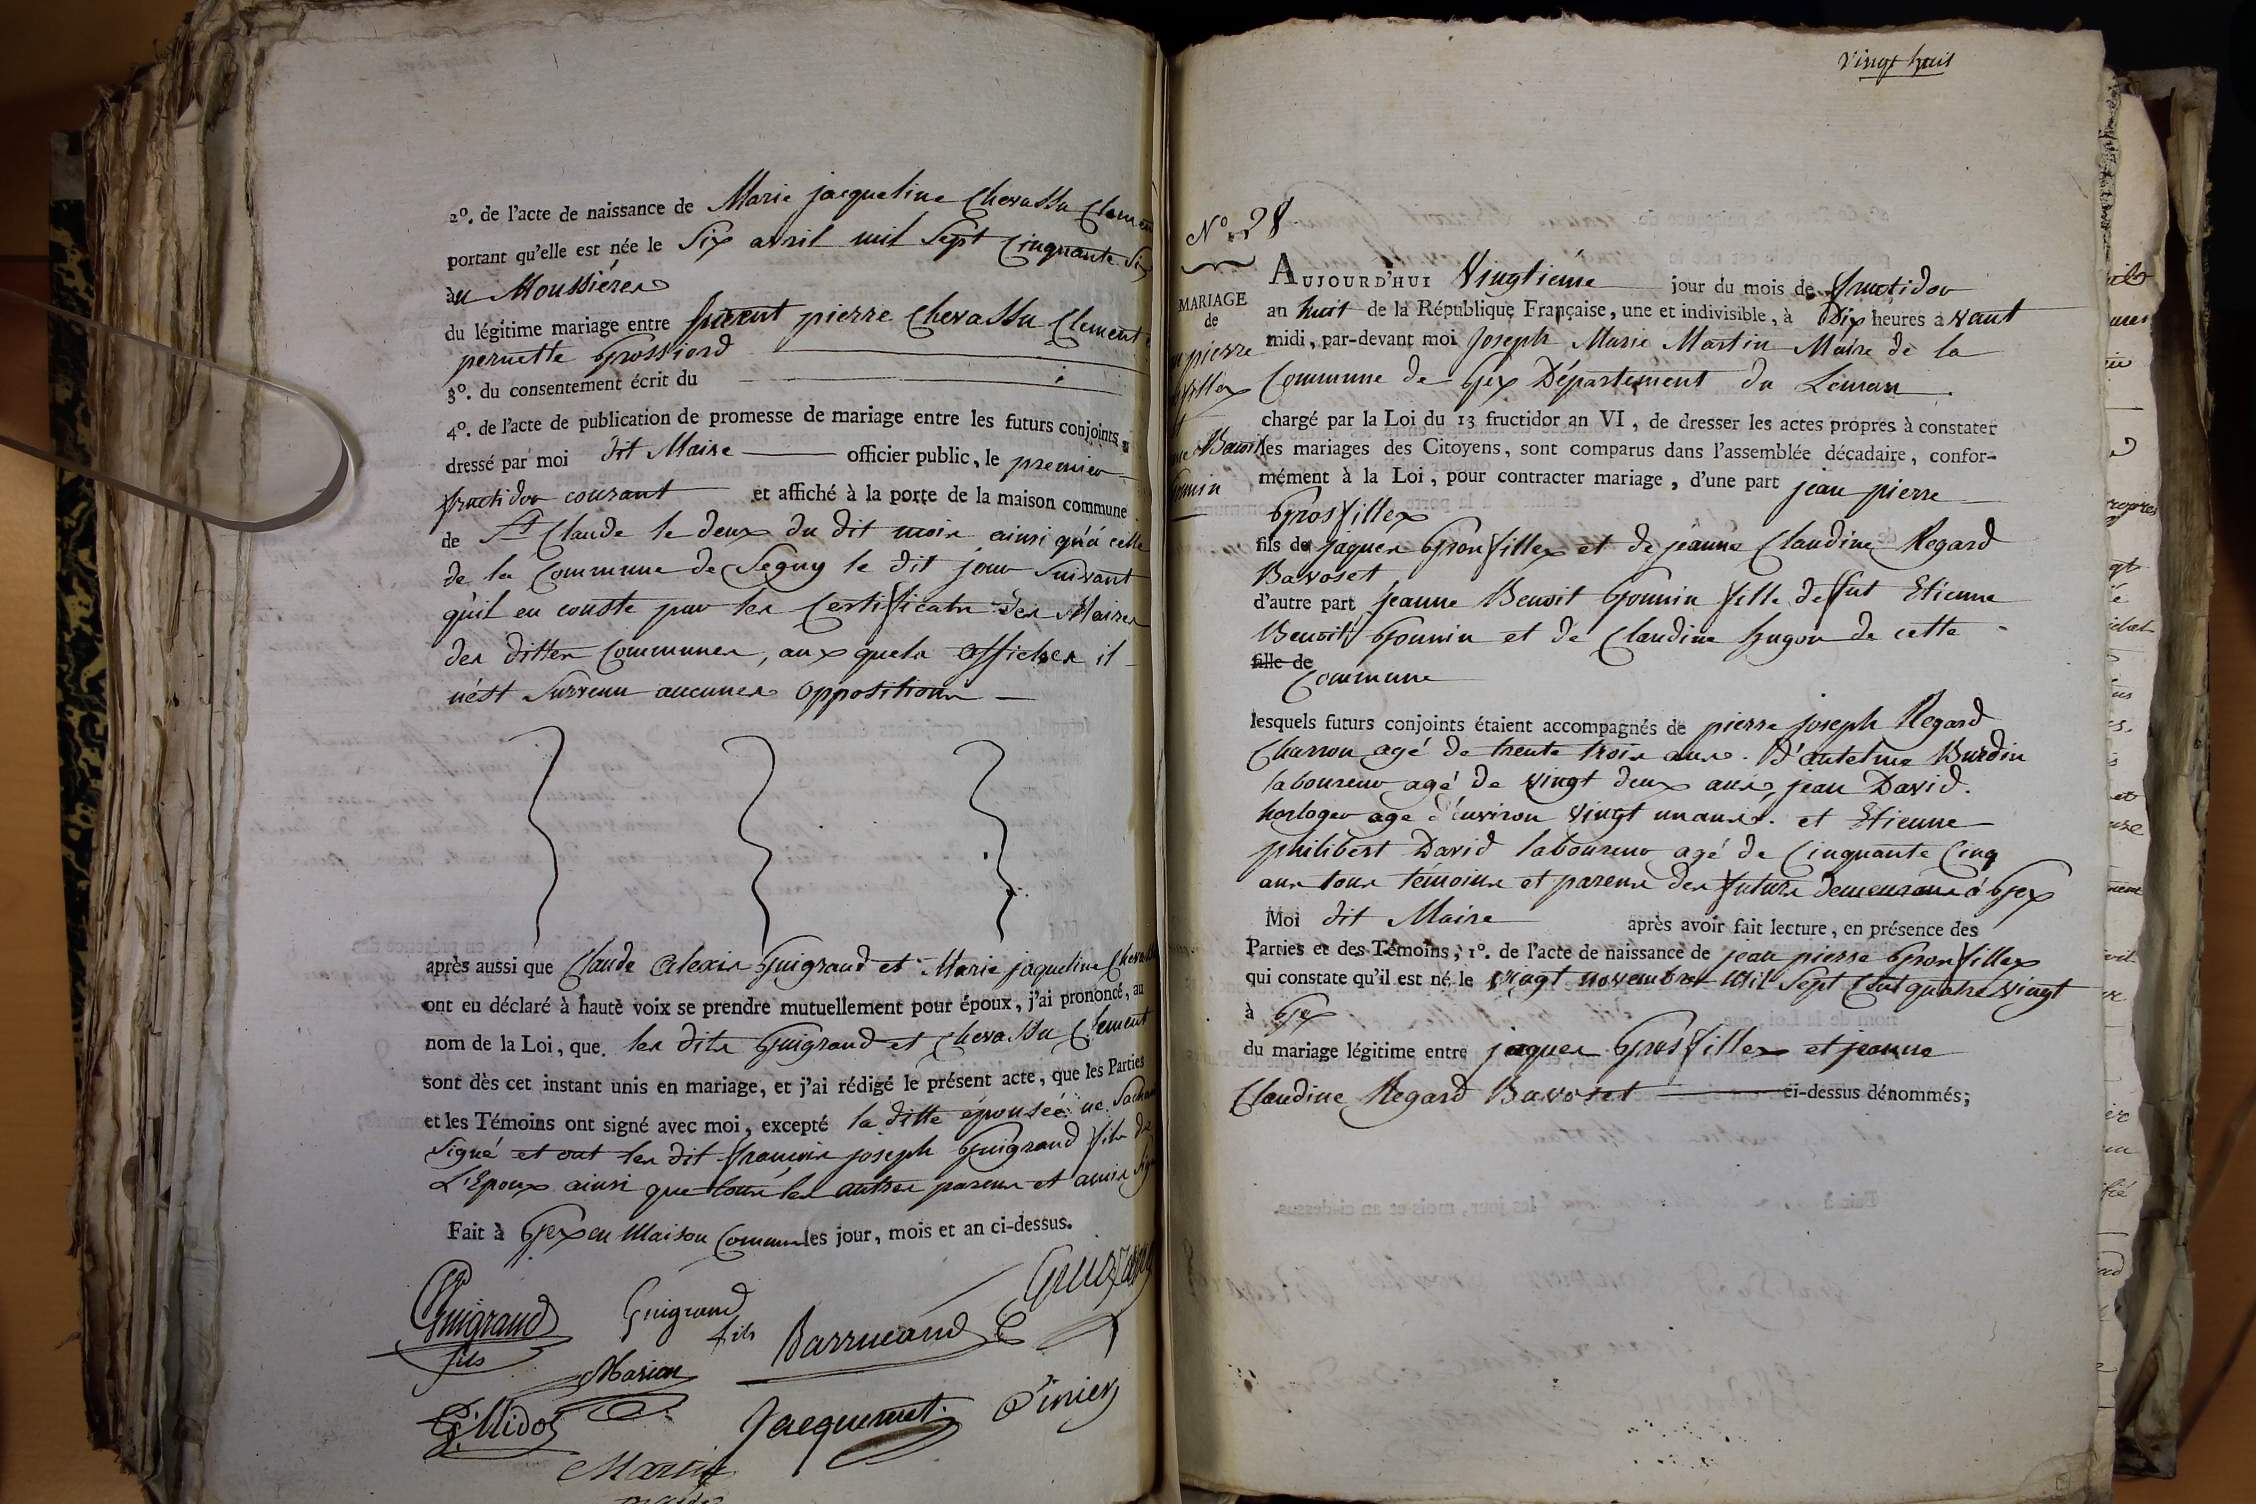 2º. de l'acte de naissance de Marie jacqueline Chevassu Clement
portant qu'elle est née le Six avril mil Sept Cinquante Six
au Moussiéres
du légitime mariage entre furent pierre Chevassu Clement
pernette Grossiord
3º. du consentement écrit du
4º. de l'acte de publication de promesse de mariage entre les futurs conjoints,
dressé par moi dit Maire officier public, le premier
fructidor courant et affiché à la porte de la maison commune
de St Claude le deux du dit mois ainsi qu'á celle
de la Commune de Segny le dit jour Suivant
qu'il en conste par les Certificats des Maires
des dittes Communes, aux quels affiches il
n'est Survenu aucunes oppositions
après aussi que Claude alexis Guigrand et Marie jaqueline Chevassu
ont eu déclaré à haute voix se prendre mutuellement pour époux, j'ai prononcé, au
nom de la Loi, que les dits Guigrand et Chevassu Clement
sont dès cet instant unis en mariage, et j'ai rédigé le présent acte, que les Parties
et les Témoins ont signé avec moi, excepté la ditte épousée ne Sachant
Signé et ont les dit françois joseph Guigrand fils de
L'Epoux ainsi que tous les autres parens et amis Signé
Fait à Gex en Maison Commune les jour, mois et an ci-dessus.
Guigrand fils
Guigrand fils
Barrucand
Marion
Jacquemet
Martin
maire
Vingt huit
Nº. 28
MARIAGE
de
pierre
Benoit
Gounin
AUJOURD'HUI Vingtiéme jour du mois de fructidor
an huit de la République Française, une et indivisible, à Dix heures avant
midi, par-devant moi Joseph Marie Martin Maire de la
Commune de Gex Département du Léman
chargé par la Loi du 13 fructidor an VI, de dresser les actes propres à constater
les mariages des Citoyens, sont comparus dans l'assemblée décadaire, confor-
mément à la Loi, pour contracter mariage, d'une part jean pierre
Grosfillex
fils de jaques Grosfillex et de jeanne Claudine Regard
Bavoset
d'autre part jeanne Benoit Gounin fille de fut Etienne
Benoit Gounin et de Claudine hugon de cette
fille de
Commune
lesquels futurs conjoints étaient accompagnés de pierre joseph Regard
Charron agé de trente trois ans. D'antelme Burdin
laboureur agé de vingt deux ans, jean David.
horloger agé d'environ vingt un ans. et Etienne
philibert David laboureur agé de Cinquante Cinq
ans tous témoins et parens des futurs demeurans á Gex
Moi dit Maire après avoir fait lecture, en présence des
Parties et des Témoins, 1º. de l'acte de naissance de jean pierre Grosfillex
qui constate qu'il est né le vingt novembre Mil Sept Cent quatre vingt
à Gex
du mariage légitime entre jaques Grosfillex et jeanne
Claudine Regard Bavoset ci-dessus dénommés;